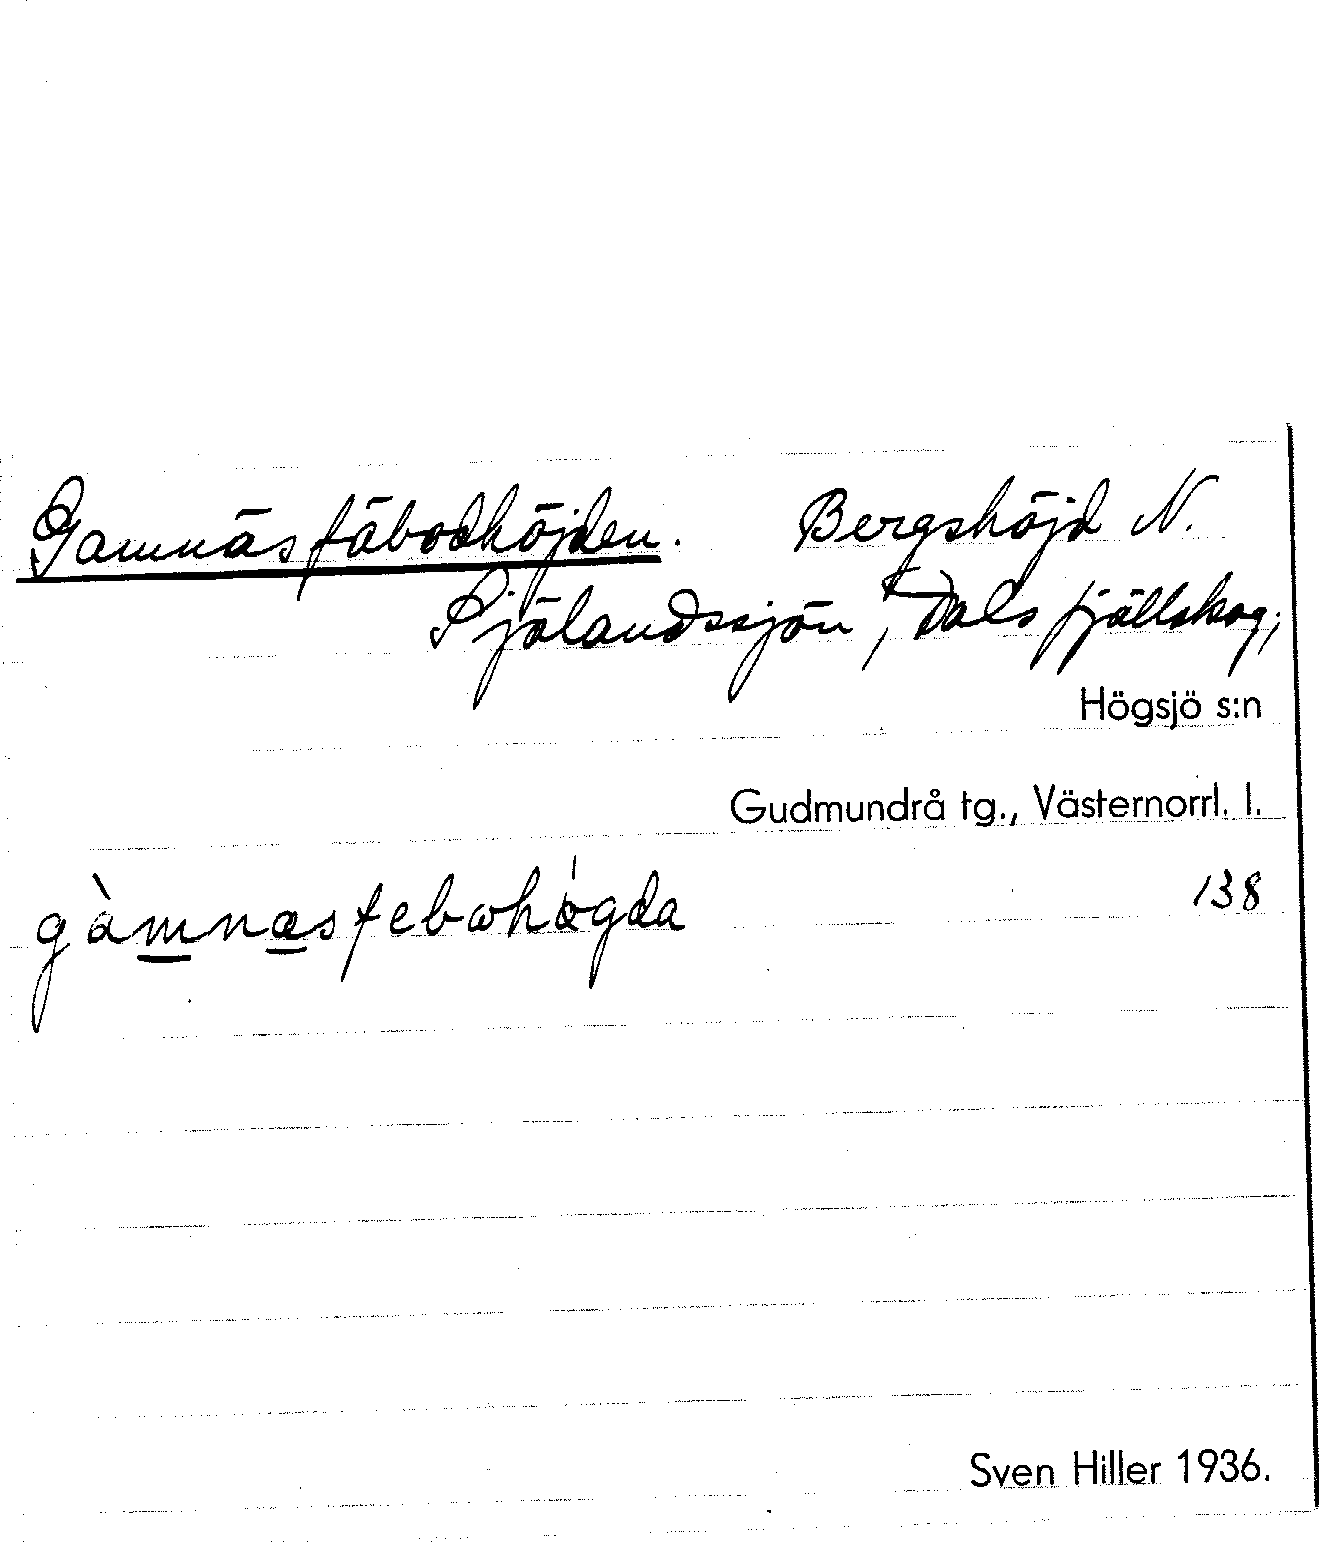 Gamnäsfäbodhöjden. Bergshöjd N.
Sjölandssjön, Dals fjällskog;
Högsjö s:n
Gudmundrå tg., Västernorrl. l.
gàmnæsfebωhǿgda 138
Sven Hiller 1936.